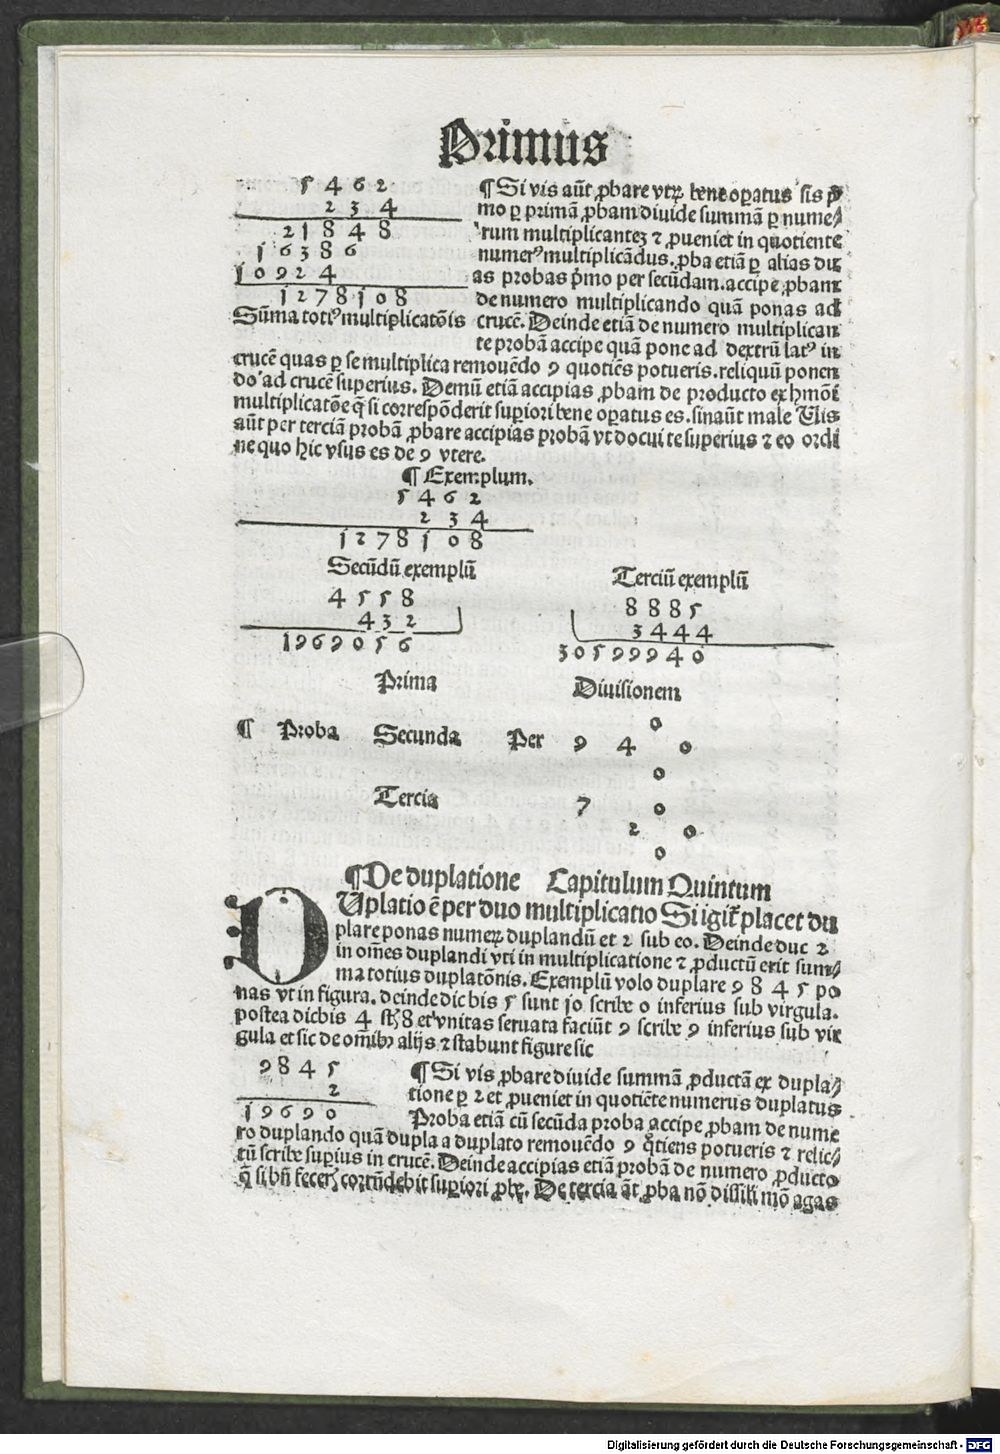 Primus
5 4 6 2
2 3 4
2 1 8 4 8
1 6 3 8 6
1 0 9 2 4
1 2 7 8 1 0 8
Sūma totiꝰ multiplicatōis
¶ Si vis aūt ꝓbare vtꝝ bene oꝑatus sis p̄
mo ꝑ primā ꝓbam diuide summā ꝑ nume⸗
rum multiplicantez ⁊ ꝓueniet in quotiente
numerꝰ multiplicādus. ꝓba etiā ꝑ alias du
as probas p̄mo per secūdam. accipe ꝓbam
de numero multiplicando quā ponas ad
crucē. Deinde etiā de numero multiplican
te probā accipe quā pone ad dextrū latꝰ in
crucē quas ꝑ se multiplica remouēdo 9 quotiēs potueris. reliquū ponen
do ad crucē superius. Demū etiā accipias ꝓbam de producto ex hmōi
multiplicatōe q̄ si correspōderit suꝑiori bene oꝑatus es. sinaūt male Uis
aūt per terciā probā ꝓbare accipias probā vt docui te superius ⁊ eo ordi
ne quo hic vsus es de 9 vtere.
¶ Exemplum.
5 4 6 2
2 3 4
1 2 7 8 1 0 8
Secūdū exemplū
4 5 5 8
4 3 2
1 9 6 9 0 5 6
Terciū exemplū
8 8 8 5
3 4 4 4
3 0 5 9 9 9 4 0
Prima Diuisionem
0
¶ Proba Secunda Per 9 4 0
0
Tercia 7 0
2 0
0
¶ De duplatione Capitulum Quintum
DUplatio ē per duo multiplicatio Si igit̄ placet du
plare ponas numeꝝ duplandū et 2 sub eo. Deinde duc 2
in om̄es duplandi vti in multiplicatione ⁊ ꝓductū erit sum⸗
ma totius duplatōnis. Exemplū volo duplare 9 8 4 5 po
nas vt in figura. deinde dic bis 5 sunt 10 scribe 0 inferius sub virgula.
postea dic bis 4 st̄ 8 et vnitas seruata faciūt 9 scribe 9 inferius sub vir
gula et sic de om̄ibꝫ alijs ⁊ stabunt figure sic
9 8 4 5
2
1 9 6 9 0
¶ Si vis ꝓbare diuide summā ꝓductā ex dupla⸗
tione ꝑ 2 et ꝓueniet in quotiēte numerus duplatus
Proba etiā cū secūda proba accipe ꝓbam de nume
ro duplando quā dupla a duplato remouēdo 9 q̊tiens potueris ⁊ relic⸗
tū scribe suꝑius in crucē. Deinde accipias etiā probā de numero ꝓducto
q̄ si bn̄ fecerꝭ corrn̄debit suꝑiori De tercia āt ꝓba nō dissili mō agas
Digitalisierung gefördert durch die Deutsche Forschungsgemeinschaft - DFG